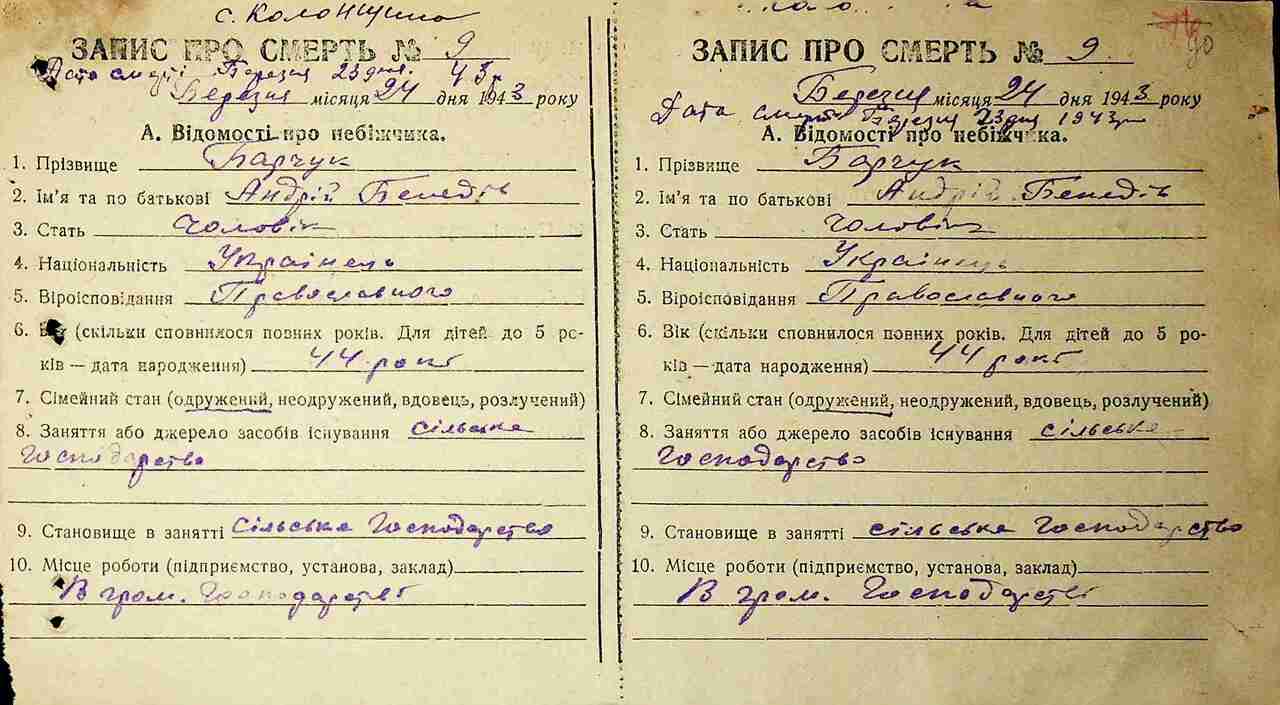 с. Колонщина
ЗАПИС ПРО СМЕРТЬ № 9
Дата смерті Березня 23 дня. 43 р
Березня місяця 24 дня 1943 року
А. Відомості про небіжчика.
1. Прізвище Барчук
2. Ім'я та по батькові Андрій Бенедів
3. Стать чоловік
4. Національність Українець
5. Віроісповідання Православного
6. Вік (скільки сповнилося повних років. Для дітей до 5 ро-
ків — дата народження) 44 рокі
7. Сімейний стан (одружений, неодружений, вдовець, розлучений)
8. Заняття або джерело засобів існування сільське
Господарство
9. Становище в занятті сільське Господарство
10. Місце роботи (підприємство, установа, заклад)
В гром. Господарстві
90
ЗАПИС ПРО СМЕРТЬ № 9
Березня місяця 24 дня 1943 року
Дата смерті Березня 23 дня 1943 р
А. Відомості про небіжчика.
1. Прізвище Барчук
2. Ім'я та по батькові Андрій Бенедів
3. Стать чоловік
4. Національність Українець
5. Віроісповідання Православного
6. Вік (скільки сповнилося повних років. Для дітей до 5 ро-
ків — дата народження) 44 рокі
7. Сімейний стан (одружений, неодружений, вдовець, розлучений)
8. Заняття або джерело засобів існування сільське
Господарство
9. Становище в занятті сільське Господарство
10. Місце роботи (підприємство, установа, заклад)
В гром. Господарстві